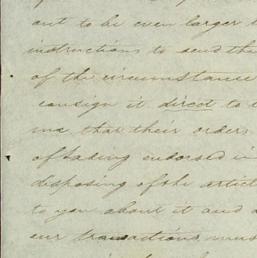 out to be even larger
instructions to send the
of the circumstance
consign it direct to
ma that their orders
of lading endorsed in
disposing of the artic
to you about it and
our transactions must